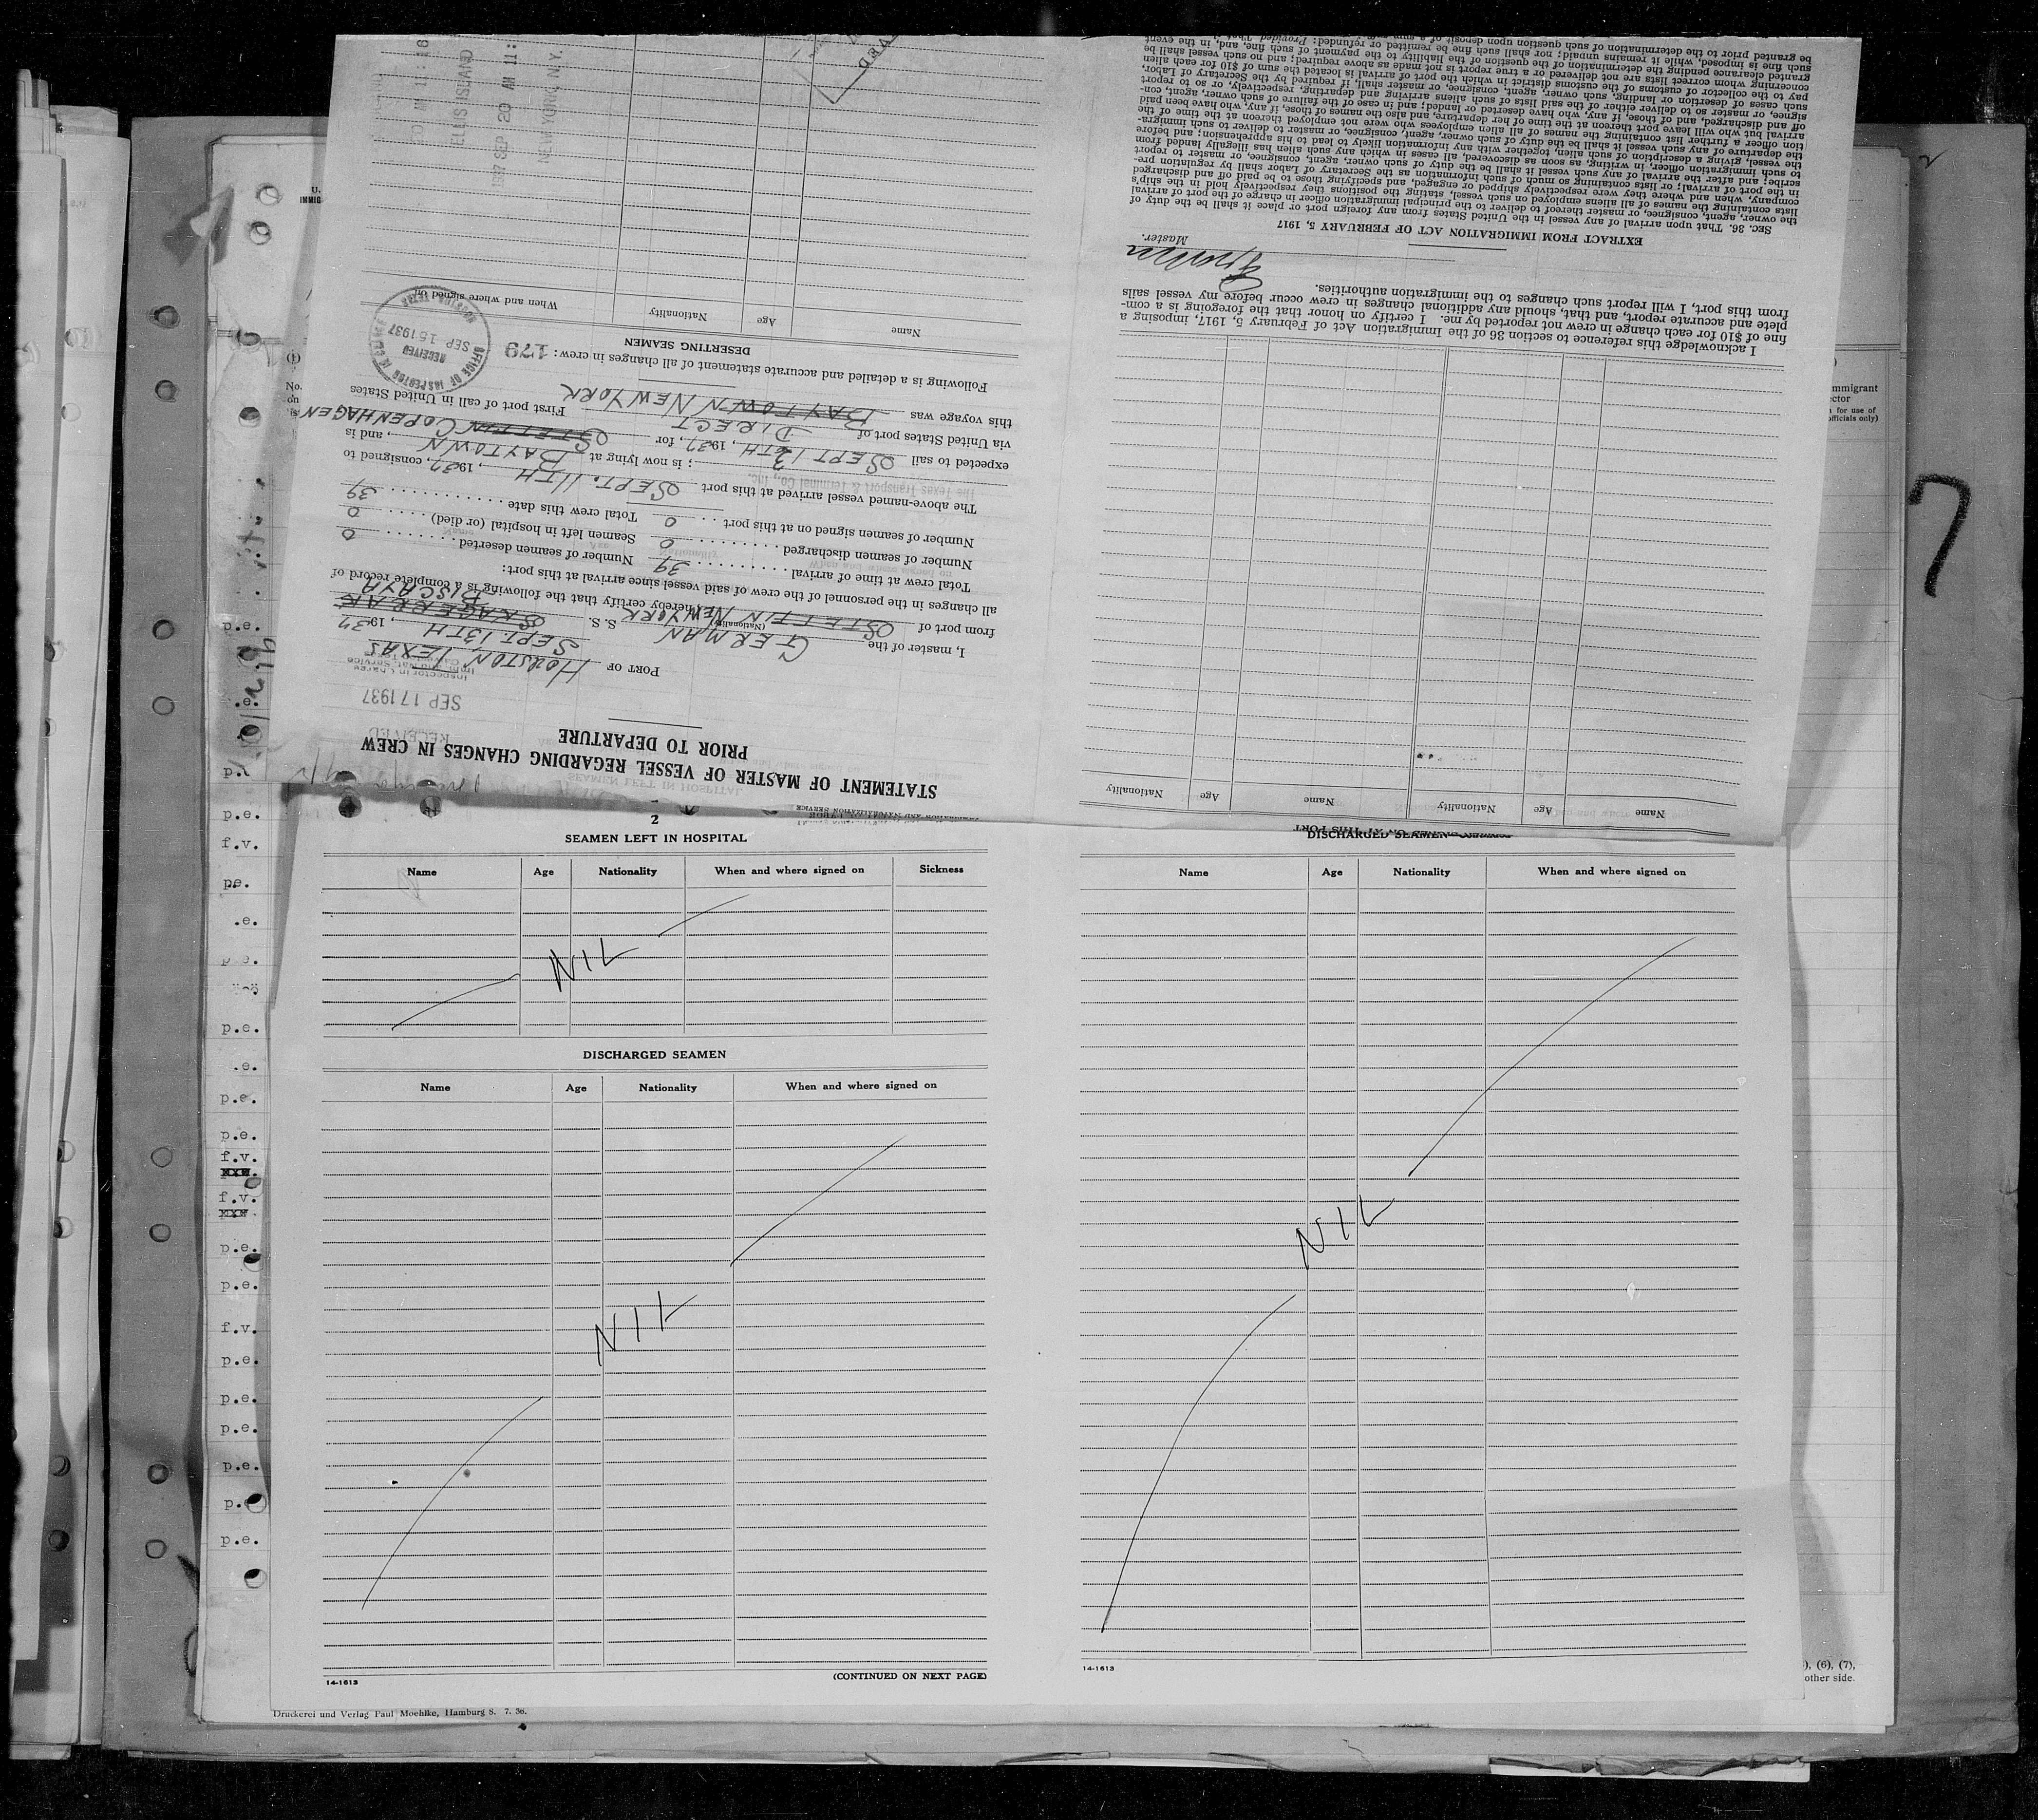 STATEMENT OF MASTER OF VESSEL REGARDING CHANGES IN CREW
PRIOR TO DEPARTURE
RECEIVED
SEP 17 1937
Inspector in Charge
PORT OF HOUSTON TEXAS
SEPT. 13TH, 1937
I, master of the GERMAN S. S. SKAGERRAK BISCAYA
(Nationality)
from port of STETTIN NEW YORK hereby certify that the following is a complete record of
all changes in the personnel of the crew of said vessel since arrival at this port:
Total crew at time of arrival 39 Number of seamen deserted 0
Number of seamen discharged 0 Seamen left in hospital (or died) 0
Number of seamen signed on at this port 0 Total crew this date 39
The Texas Transport & Terminal Co., Inc.
The above-named vessel arrived at this port SEPT. 11TH, 1937, consigned to
; is now lying at BAYTOWN, and is
expected to sail SEPT 13TH, 1937, for STETTIN COPENHAGEN
via United States port of DIRECT First port of call in United States
this voyage was BAYTOWN NEW YORK
Following is a detailed and accurate statement of all changes in crew: 179
OFFICE OF INSPECTOR IN CHARGE
RECEIVED
SEP 15 1937
HOUSTON, TEXAS
DESERTING SEAMEN
Name Age Nationality When and where signed on
ELLIS ISLAND
1937 SEP 20 AM 11:
NEW YORK, N.Y.
Name Age Nationality Name Age Nationality
I acknowledge this reference to section 36 of the Immigration Act of February 5, 1917, imposing a
fine of $10 for each change in crew not reported by me. I certify on honor that the foregoing is a com-
plete and accurate report, and that, should any additional changes in crew occur before my vessel sails
from this port, I will report such changes to the immigration authorities.
Master.
EXTRACT FROM IMMIGRATION ACT OF FEBRUARY 5, 1917
SEC. 36. That upon arrival of any vessel in the United States from any foreign port or place it shall be the duty of
the owner, agent, consignee, or master thereof to deliver to the principal immigration officer in charge of the port of arrival
lists containing the names of all aliens employed on such vessel, stating the positions they respectively hold in the ship's
company, when and where they were respectively shipped or engaged, and specifying those to be paid off and discharged
in the port of arrival; or lists containing so much of such information as the Secretary of Labor shall by regulation pre-
scribe; and after the arrival of any such vessel it shall be the duty of such owner, agent, consignee, or master to report
to such immigration officer, in writing, as soon as discovered, all cases in which any such alien has illegally landed from
the vessel, giving a description of such alien, together with any information likely to lead to his apprehension; and before
the departure of any such vessel it shall be the duty of such owner, agent, consignee, or master to deliver to such immigra-
tion officer a further list containing the names of all alien employees who were not employed thereon at the time of the
arrival but who will leave port thereon at the time of her departure, and also the names of those, if any, who have been paid
off and discharged, and of those, if any, who have deserted or landed; and in case of the failure of such owner, agent, con-
signee, or master so to deliver either of the said lists of such aliens arriving and departing, respectively, or so to report
such cases of desertion or landing, such owner, agent, consignee, or master shall, if required by the Secretary of Labor,
pay to the collector of customs of the customs district in which the port of arrival is located the sum of $10 for each alien
concerning whom correct lists are not delivered or a true report is not made as above required; and no such vessel shall be
granted clearance pending the determination of the question of the liability to the payment of such fine, and, in the event
such fine is imposed, while it remains unpaid; nor shall such fine be remitted or refunded: Provided, That
be granted prior to the determination of such question upon deposit of a sum
7
2
SEAMEN LEFT IN HOSPITAL
Name Age Nationality When and where signed on Sickness
NIL
DISCHARGED SEAMEN
Name Age Nationality When and where signed on
NIL
(CONTINUED ON NEXT PAGE)
14-1613
DISCHARGED SEAMEN
Name Age Nationality When and where signed on
NIL
14-1613
p.e.
p.e.
f.v.
pe.
.e.
p.e.
.e.
p.e.
p.e.
f.v.
f.v.
p.e.
p.e.
f.v.
p.e.
p.e.
p.e.
p.e.
p.e.
(6), (7),
other side.
Druckerei und Verlag Paul Moehlke, Hamburg 8. 7. 36.